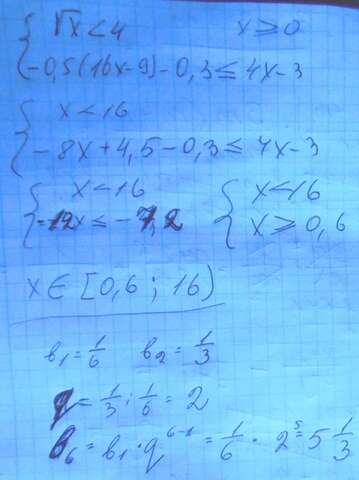 { √x < 4 x ≥ 0
-0,5(16x-9)-0,3 ≤ 4x-3
{ x < 16
-8x+4,5-0,3 ≤ 4x-3
{ x < 16 { x < 16
-12x ≤ -7,2 x ≥ 0,6
x ∈ [0,6 ; 16)
b₁ = 1/6 b₂ = 1/3
q = 1/3 : 1/6 = 2
b₆ = b₁ · q⁶⁻¹ = 1/6 · 2⁵ = 5 1/3